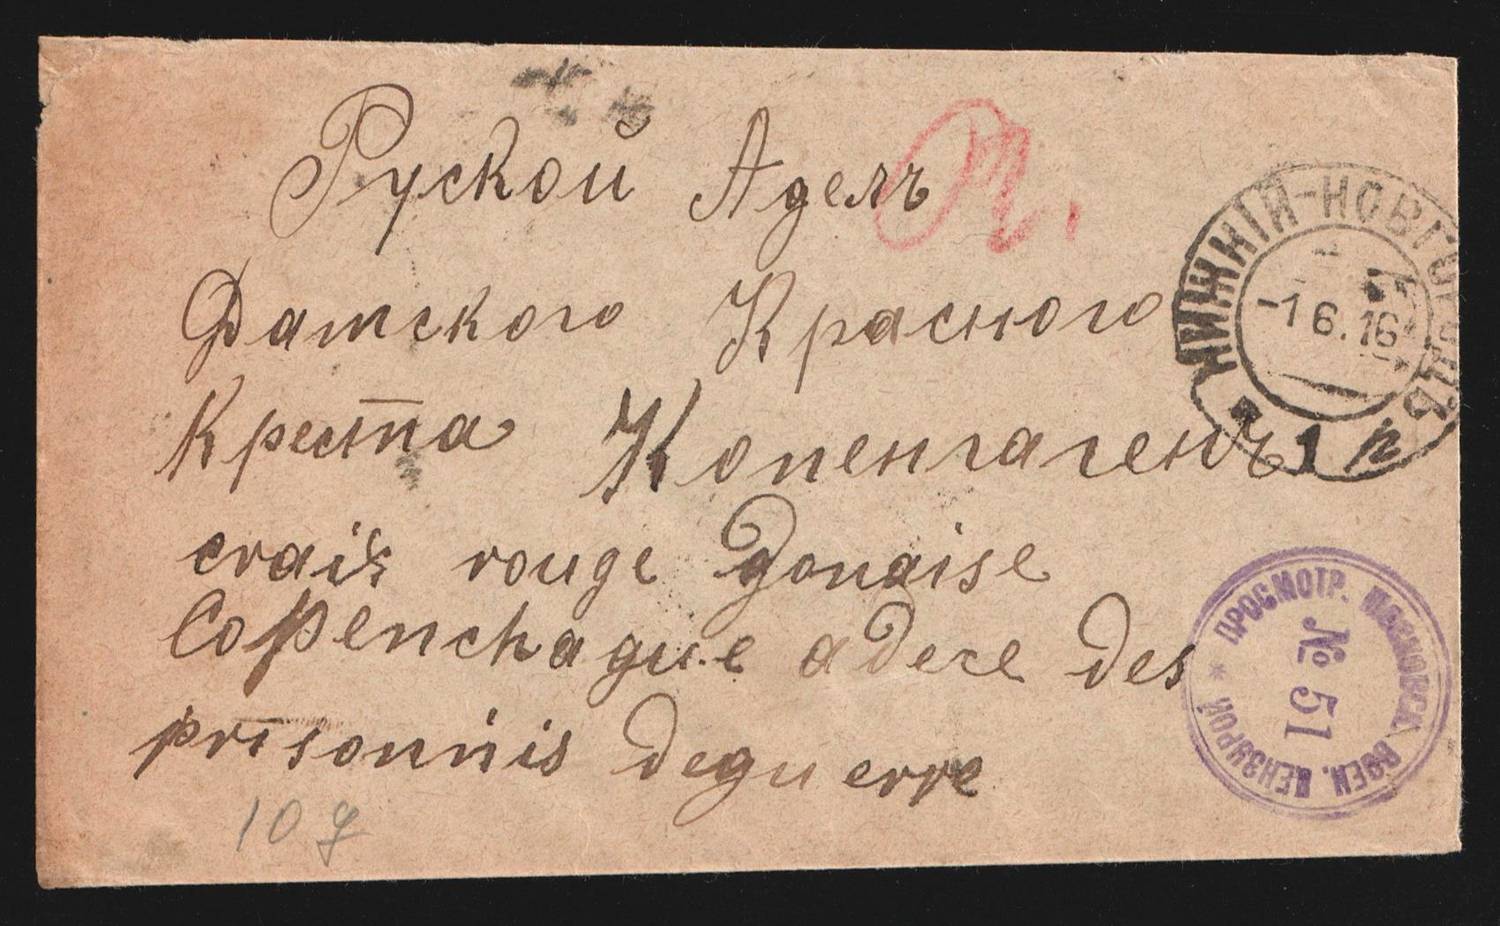 Руской Аделъ
Датского Красного
Креста Копенгагенъ
craik rouge Donaise
Copenchague adere des
prisonnis deguerre
10
НИЖНІЙ-НОВГОРОДЪ
-1 6.16
1
ПРОСМОТР. МОСКОВСК. ВОЕН. ЦЕНЗУРОЙ *
№ 51